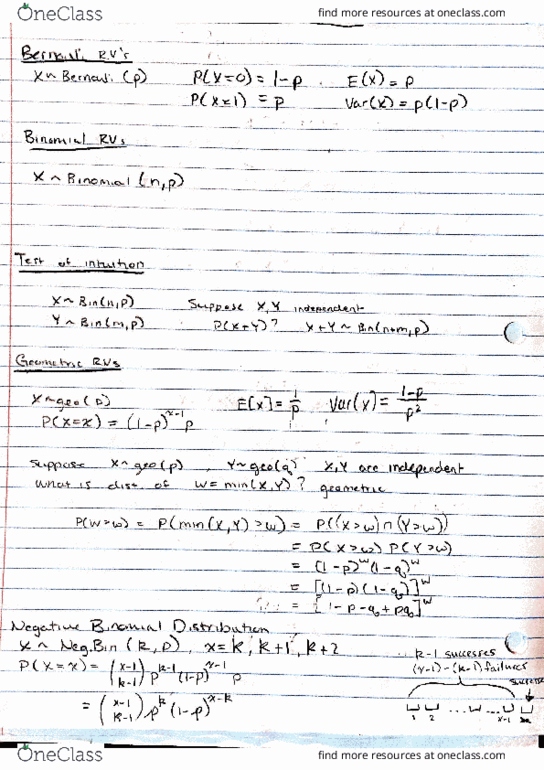 OneClass find more resources at oneclass.com
Bernoulli RV's
X ~ Bernoulli (p) P(X=0) = 1-p E(X) = p
P(X=1) = p Var(X) = p(1-p)
Binomial RVs
X ~ Binomial (n,p)
Test of intuition
X ~ Bin(n,p) Suppose X,Y independent
Y ~ Bin(m,p) P(X+Y)? X+Y ~ Bin(n+m,p)
Geometric RVs
X~geo(p) E[X] = 1/p Var[X] = (1-p)/p²
P(X=x) = (1-p)^(x-1) p
Suppose X~geo(p), Y~geo(q) X,Y are independent
What is dist. of W = min(X,Y)? geometric
P(W>w) = P(min(X,Y)>w) = P((X>w)∩(Y>w))
= P(X>w) P(Y>w)
= (1-p)^w (1-q)^w
= [(1-p)(1-q)]^w
= [1-p-q+pq]^w
Negative Binomial Distribution
X ~ Neg.Bin (k,p), x = k, k+1, k+2 ... k-1 successes
P(X=x) = (x-1 k-1) p^(k-1) (1-p)^(x-1) p (x-1)-(k-1) failures
success
= (x-1 k-1) p^k (1-p)^(x-k)
1 2 ... ... x-1
OneClass find more resources at oneclass.com